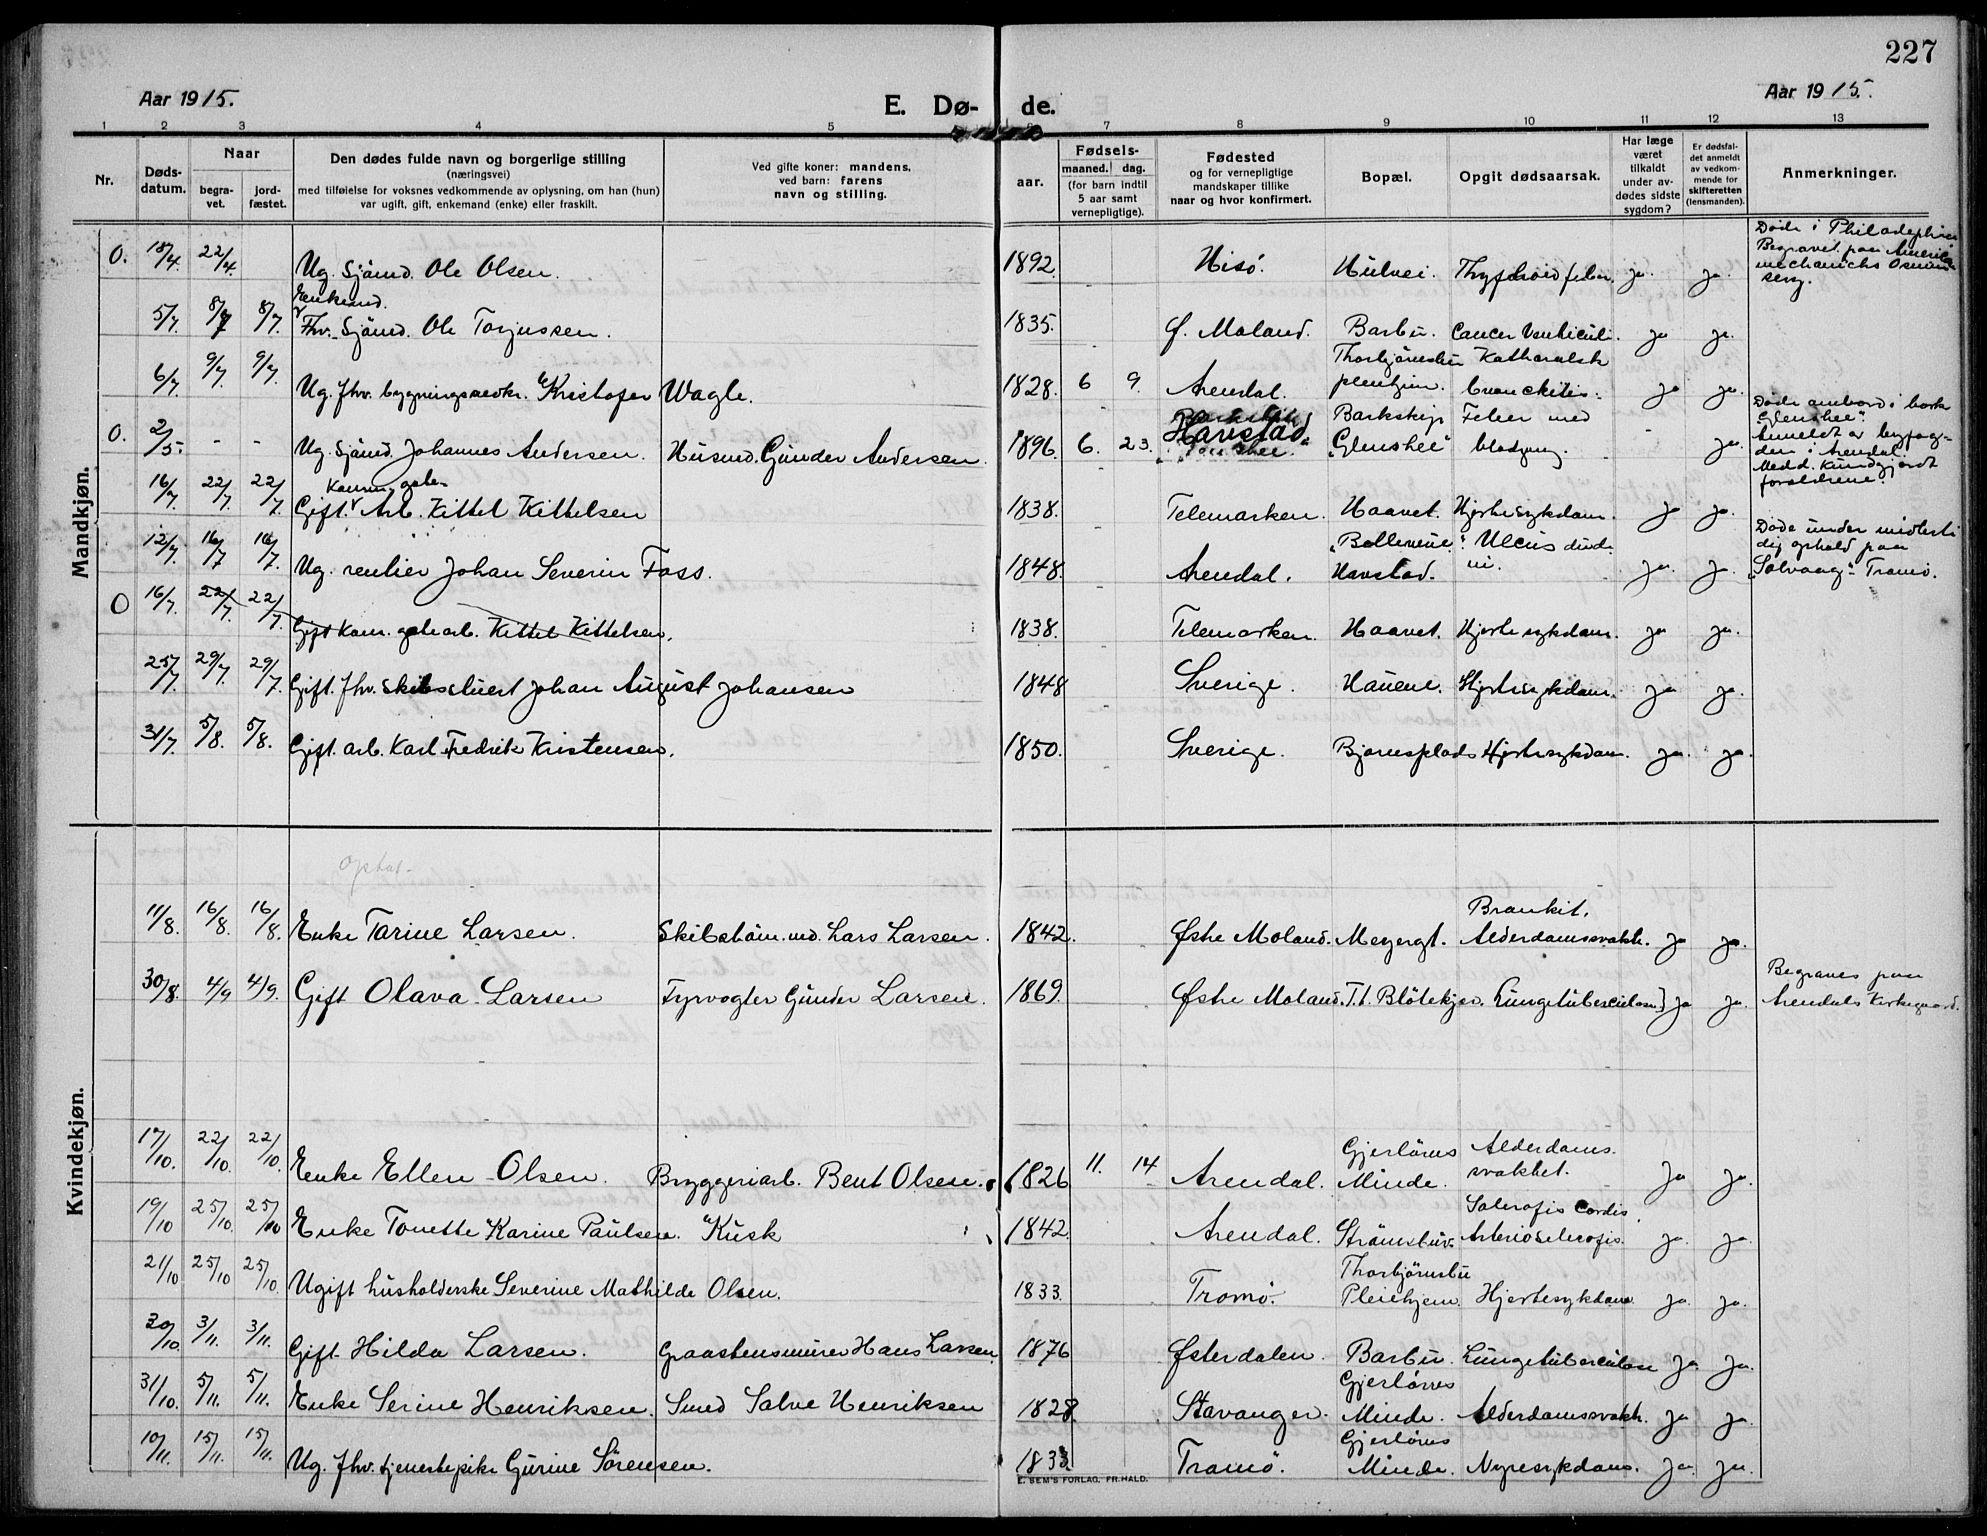 227
Aar 1915.
E. Dø- de.
Aar 1915.
1 2 3 4 5 6 7 8 9 10 11 12 13
Nr.
Døds-
datum.
Naar
begra-
vet.
jord-
fæstet.
Den dødes fulde navn og borgerlige stilling
(næringsvei)
med tilføielse for voksnes vedkommende av oplysning, om han (hun)
var ugift, gift, enkemand (enke) eller fraskilt.
Ved gifte koner: mandens,
ved barn: farens
navn og stilling.
aar.
Fødsels-
maaned. dag.
(for barn indtil
5 aar samt
vernepligtige).
Fødested
og for vernepligtige
mandskaper tillike
naar og hvor konfirmert.
Bopæl.
Opgit dødsaarsak.
Har læge
været
tilkaldt
under av-
dødes sidste
sygdom?
Er dødsfal-
det anmeldt
av vedkom-
mende for
skifteretten
(lensmanden).
Anmerkninger.
Mandkjøn.
0. 18/4. 22/4. Ug. Sjömd. Ole Olsen. 1892. Hisö. Hulvei. ja. ja.
Døde i Philadelphia
Begravet paa
Enkemd.
5/7 8/7 8/7. Fhv. Sjömd. Ole Torjussen. 1835. Ø. Moland. Barbu. Cancer Ventriculi. ja ja.
6/7 9/7. 9/7. Ug. fhv. Kristofer Wagle. 1828. 6 9. Arendal. Thorbjörnsbu Katharalsk
bronchitis. ja ja.
0. 2/5. - - Ug. Sjömd. Johannes Andersen. Husmd. Gunder Andersen. 1896. 6. 23. Havstad Barkskip Feber med
"Glenshee" ja.
Døde ombord i bark
"Glenshee".
Anmeldt av byfog-
den i Arendal.
Medd. kundgjordt
forældrene.
16/7 22/7 22/7. Gift. Arb. Kittel Kittelsen 1838. Telemarken. Haavet. Hjertesykdom. ja ja.
12/7. 16/7 16/7. Ug. rentier Johan Severin Foss. 1848. Arendal. "Bellevue". Ulcus
Havstad. ja. ja.
Døde under midlerti
dig ophold paa
"Solvaag" Tromö.
0 16/7. 22/7. 22/7. Gift Kom. arb. Kittel Kittelsen. 1838. Telemarken. Haavet. Hjertesykdom. ja ja.
25/7. 29/7. 29/7. Gift. fhv. Skibsstuert Johan August Johansen 1848 Sverige. Havene. Hjertesykdom. ja ja.
31/7. 5/8. 5/8. Gift. arb. Karl Fredrik Kristensen. 1850. Sverige. Bjornsplads Hjertesykdom. ja. ja.
Kvindekjøn.
11/8. 16/8. 16/8. Enke Tarine Larsen. Skibstöm.md. Lars Larsen. 1842. Østre Moland. Meyergt. Bronkit.
Alderdomssvakh. ja ja.
30/8. 4/9 4/9. Gift Olava Larsen Fyrvogter Gunder Larsen. 1869. Østre Moland. T.t. Blötekjer. Lungetuberculose ja ja.
Begraves paa
Arendals Kirkegaard.
17/10. 22/10. 22/10. Enke Ellen Olsen. Bryggeriarb. Bent Olsen. 1826 11. 14 Arendal. Gjerlöws Alderdoms.
Minde. svakhet. ja ja.
19/10 25/10. 25/10 Enke Tonette Karine Paulsen. Kusk 1842. Arendal. Strömsbu. Sclerosis Cordis.
Arteriosclerosis. ja. ja.
21/10 25/10 25/10. Ugift husholderske Severine Mathilde Olsen. 1833. Tromö. Thorbjörnsbu
Pleiehjem. Hjertesykdom ja. ja.
30/10. 3/11. 3/11. Gift Hilda Larsen. Graastensmurer Hans Larsen. 1876 Østerdalen. Barbu. Lungetuberculose ja. ja.
31/10. 5/11. 5/11. Enke Serine Henriksen. Smed Salve Henriksen 1828. Stavanger. Gjerlöws
Minde. Alderdomssvakh. ja ja.
10/11. 15/11. 15/11. Ug. fhv. tjenestepike Gurine Sörensen. 1833. Tromö. Gjerlöws
Minde. Nyresykdom. ja. ja.
E. SEM'S FORLAG, FR.HALD.